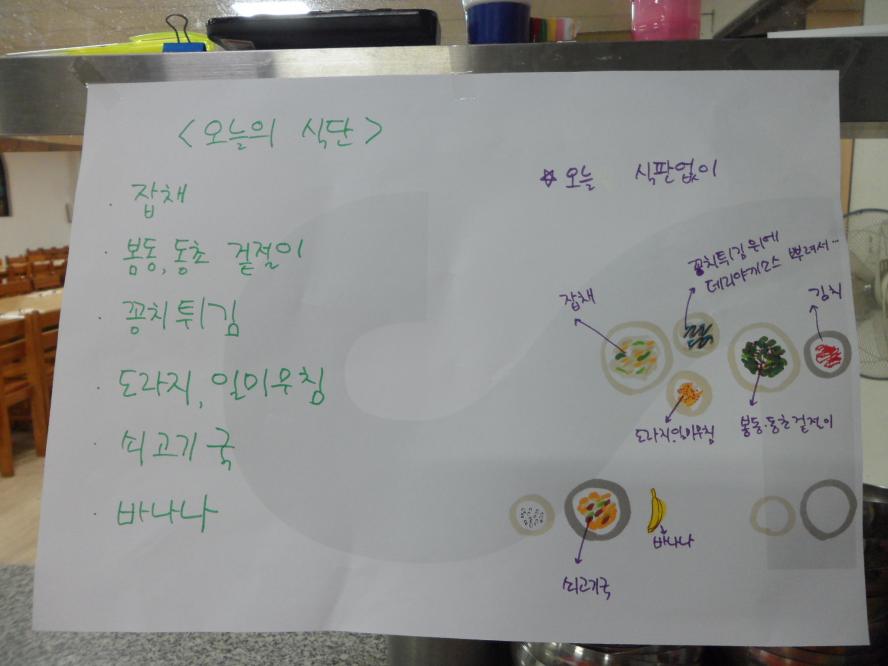 <오늘의 식단>
· 잡채
· 봄동, 동초 겉절이
· 꽁치튀김
· 도라지, 일미무침
· 쇠고기국
· 바나나
☆ 오늘 식판없이
꽁치튀김위에
데리야끼소스 뿌려서..
잡채
김치
도라지.일미무침
봄동.동초겉절이
바나나
쇠고기국